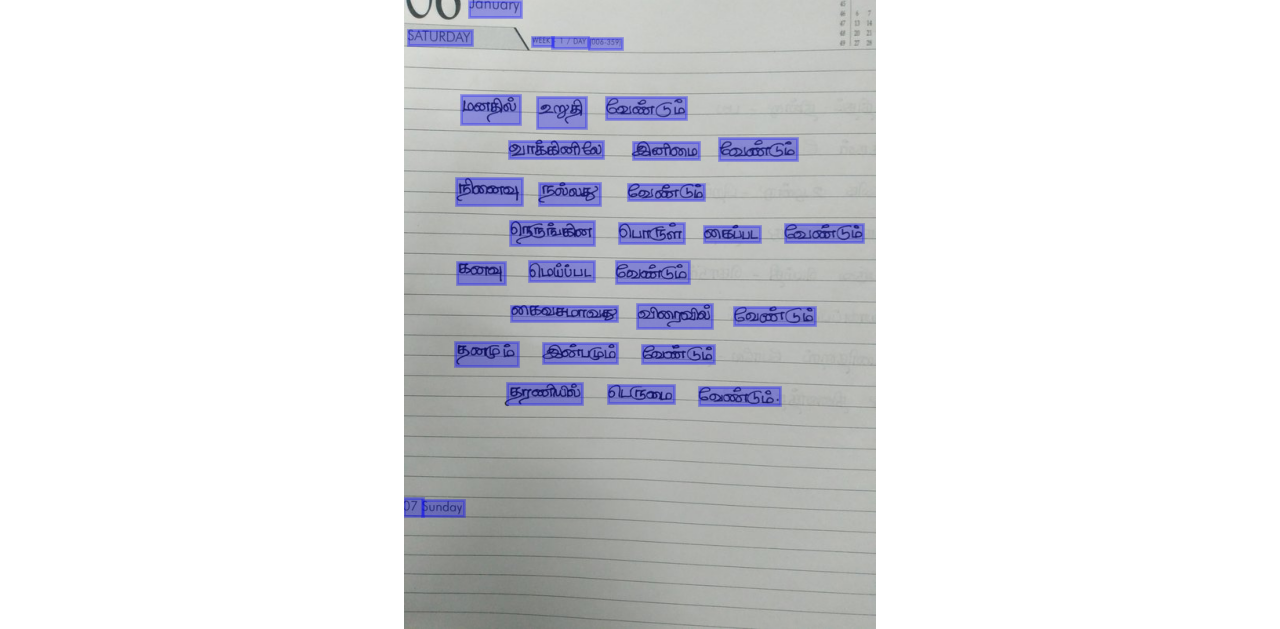 06 January
SATURDAY WEEK 1 / DAY (006-359)
மனதில் உறுதி வேண்டும்
வாக்கினிலே இனிமை வேண்டும்
நினைவு நல்லது வேண்டும்
நெருங்கின பொருள் கைப்பட வேண்டும்
கனவு மெய்ப்பட வேண்டும்
கைவசமாவது விரைவில் வேண்டும்
தனமும் இன்பமும் வேண்டும்
தரணியில் பெருமை வேண்டும்.
07 Sunday